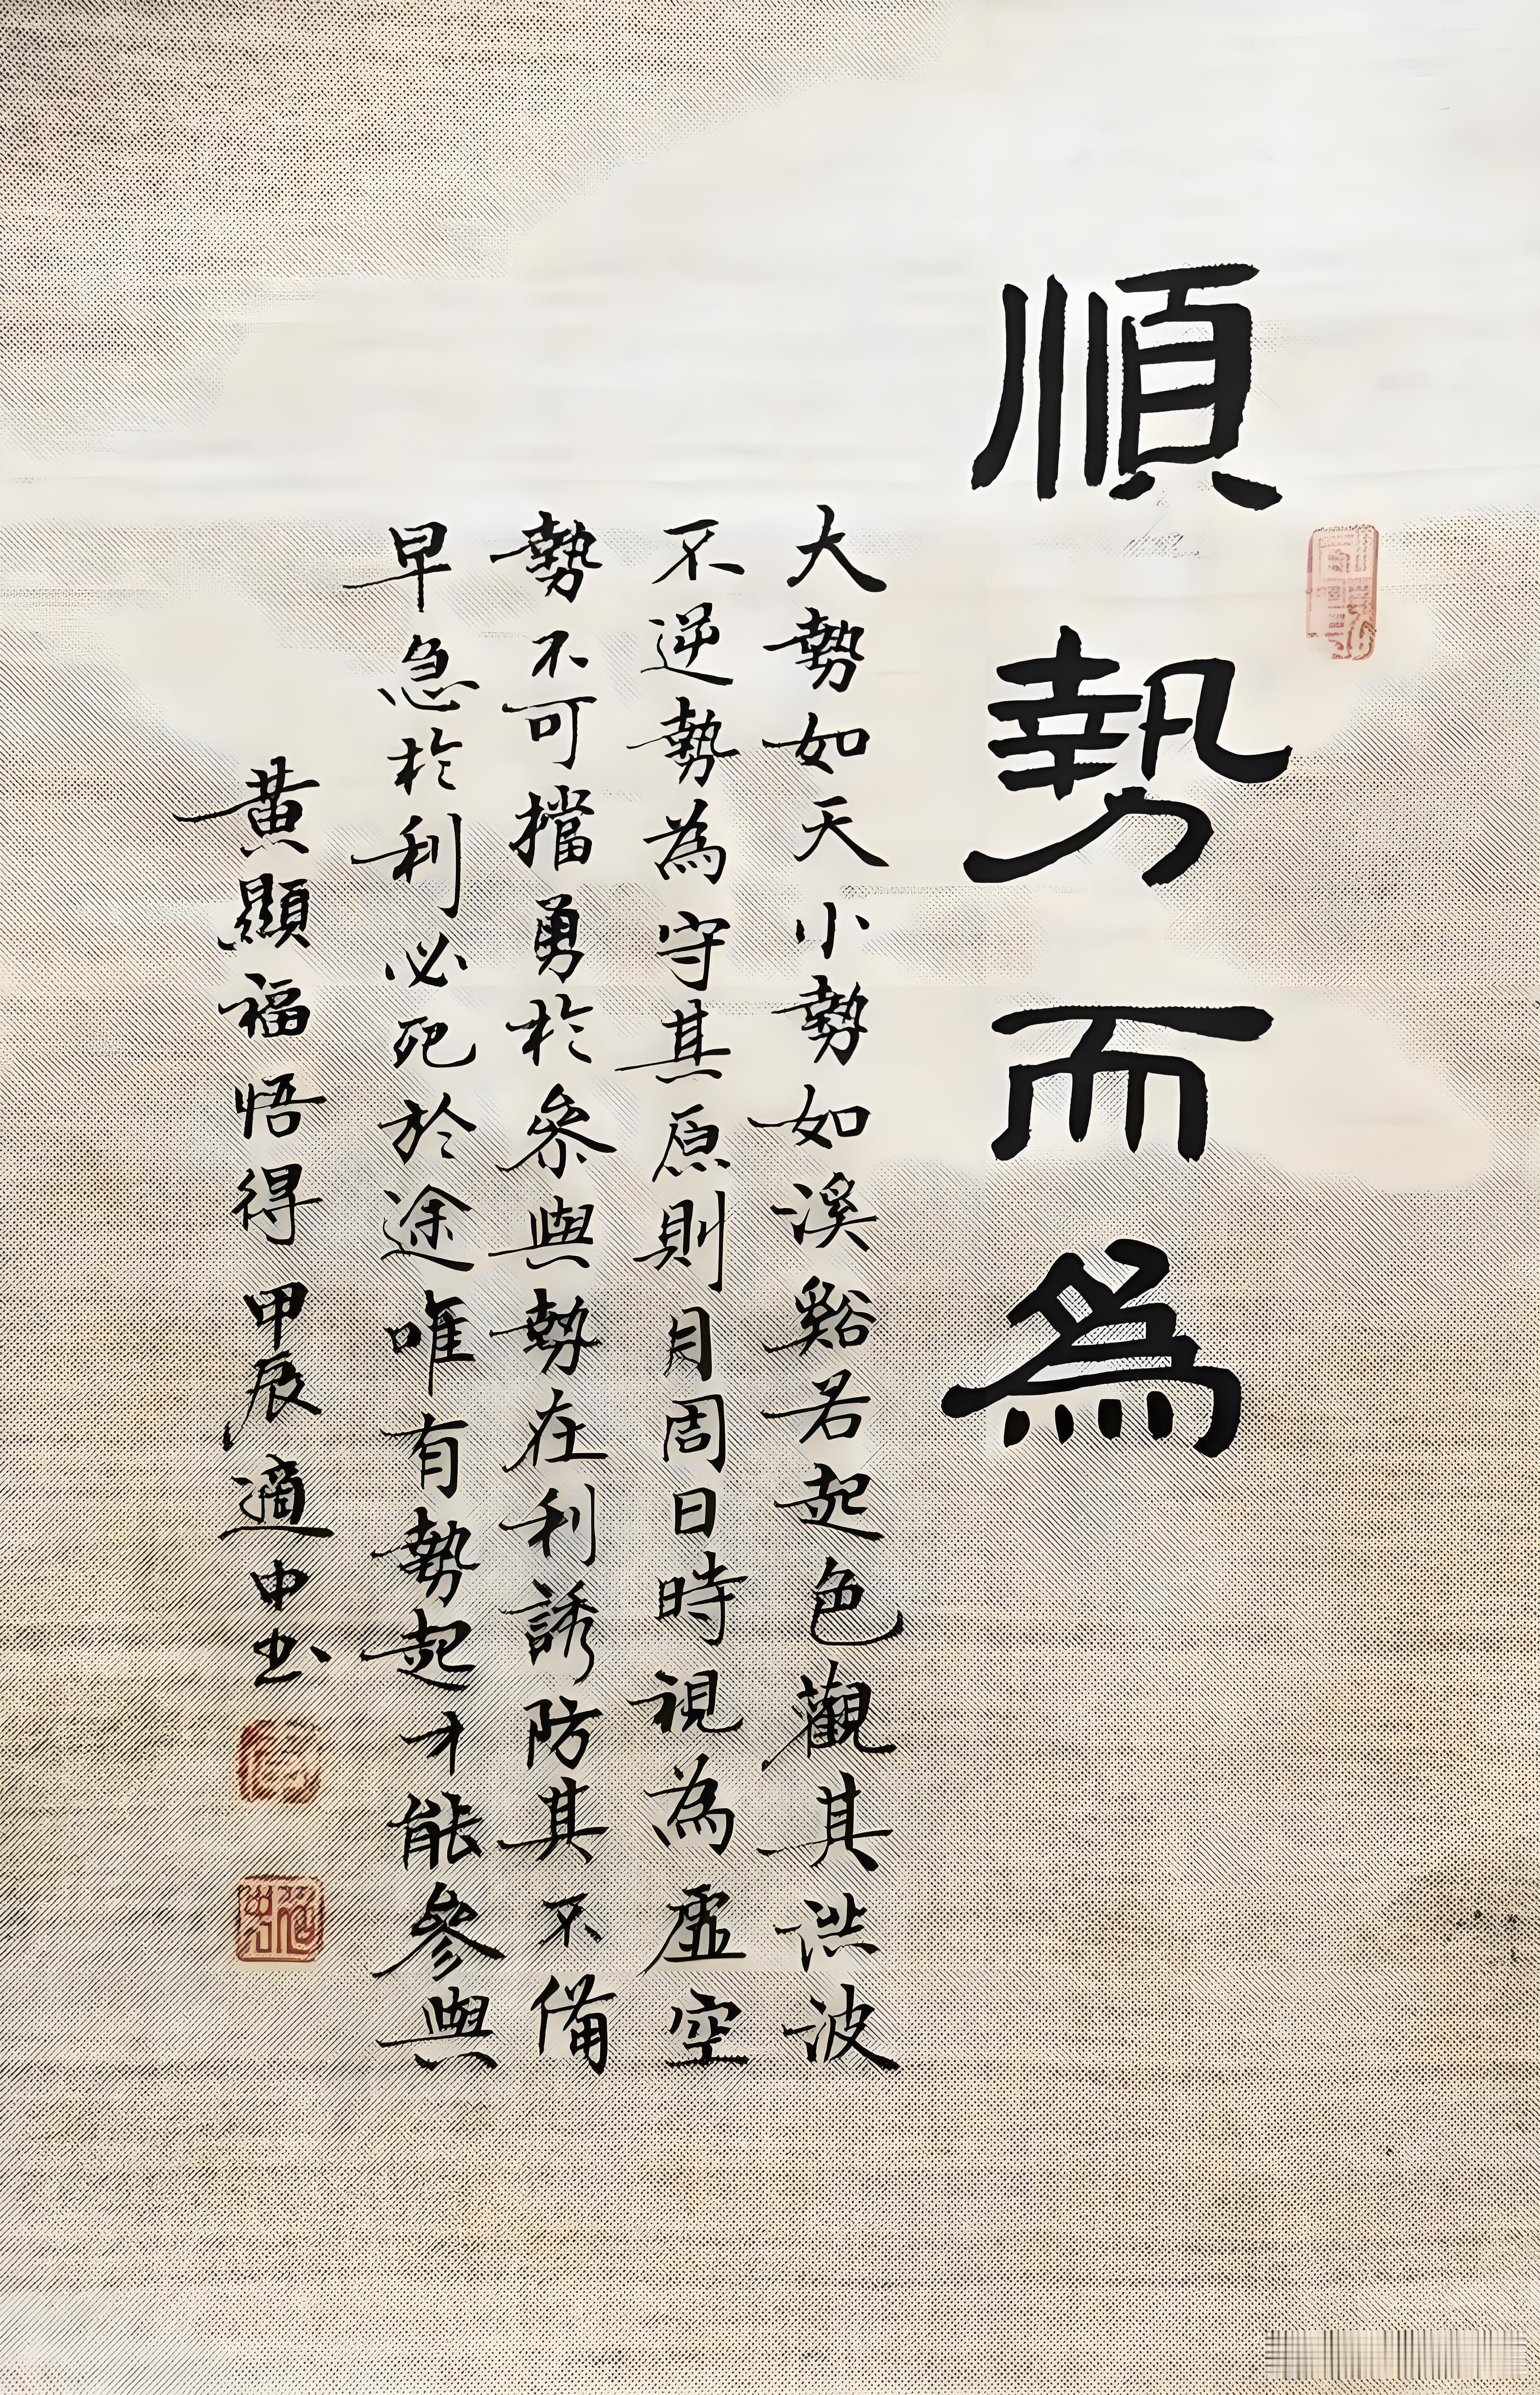 順勢而為
大勢如天小勢如溪谿若起色觀其洪波
不逆勢為守其原則月周日時視為虛空
勢不可擋勇於參與勢在利誘防其不備
早急於利必死於途唯有勢起才能參與
黃顯福悟得甲辰適中书